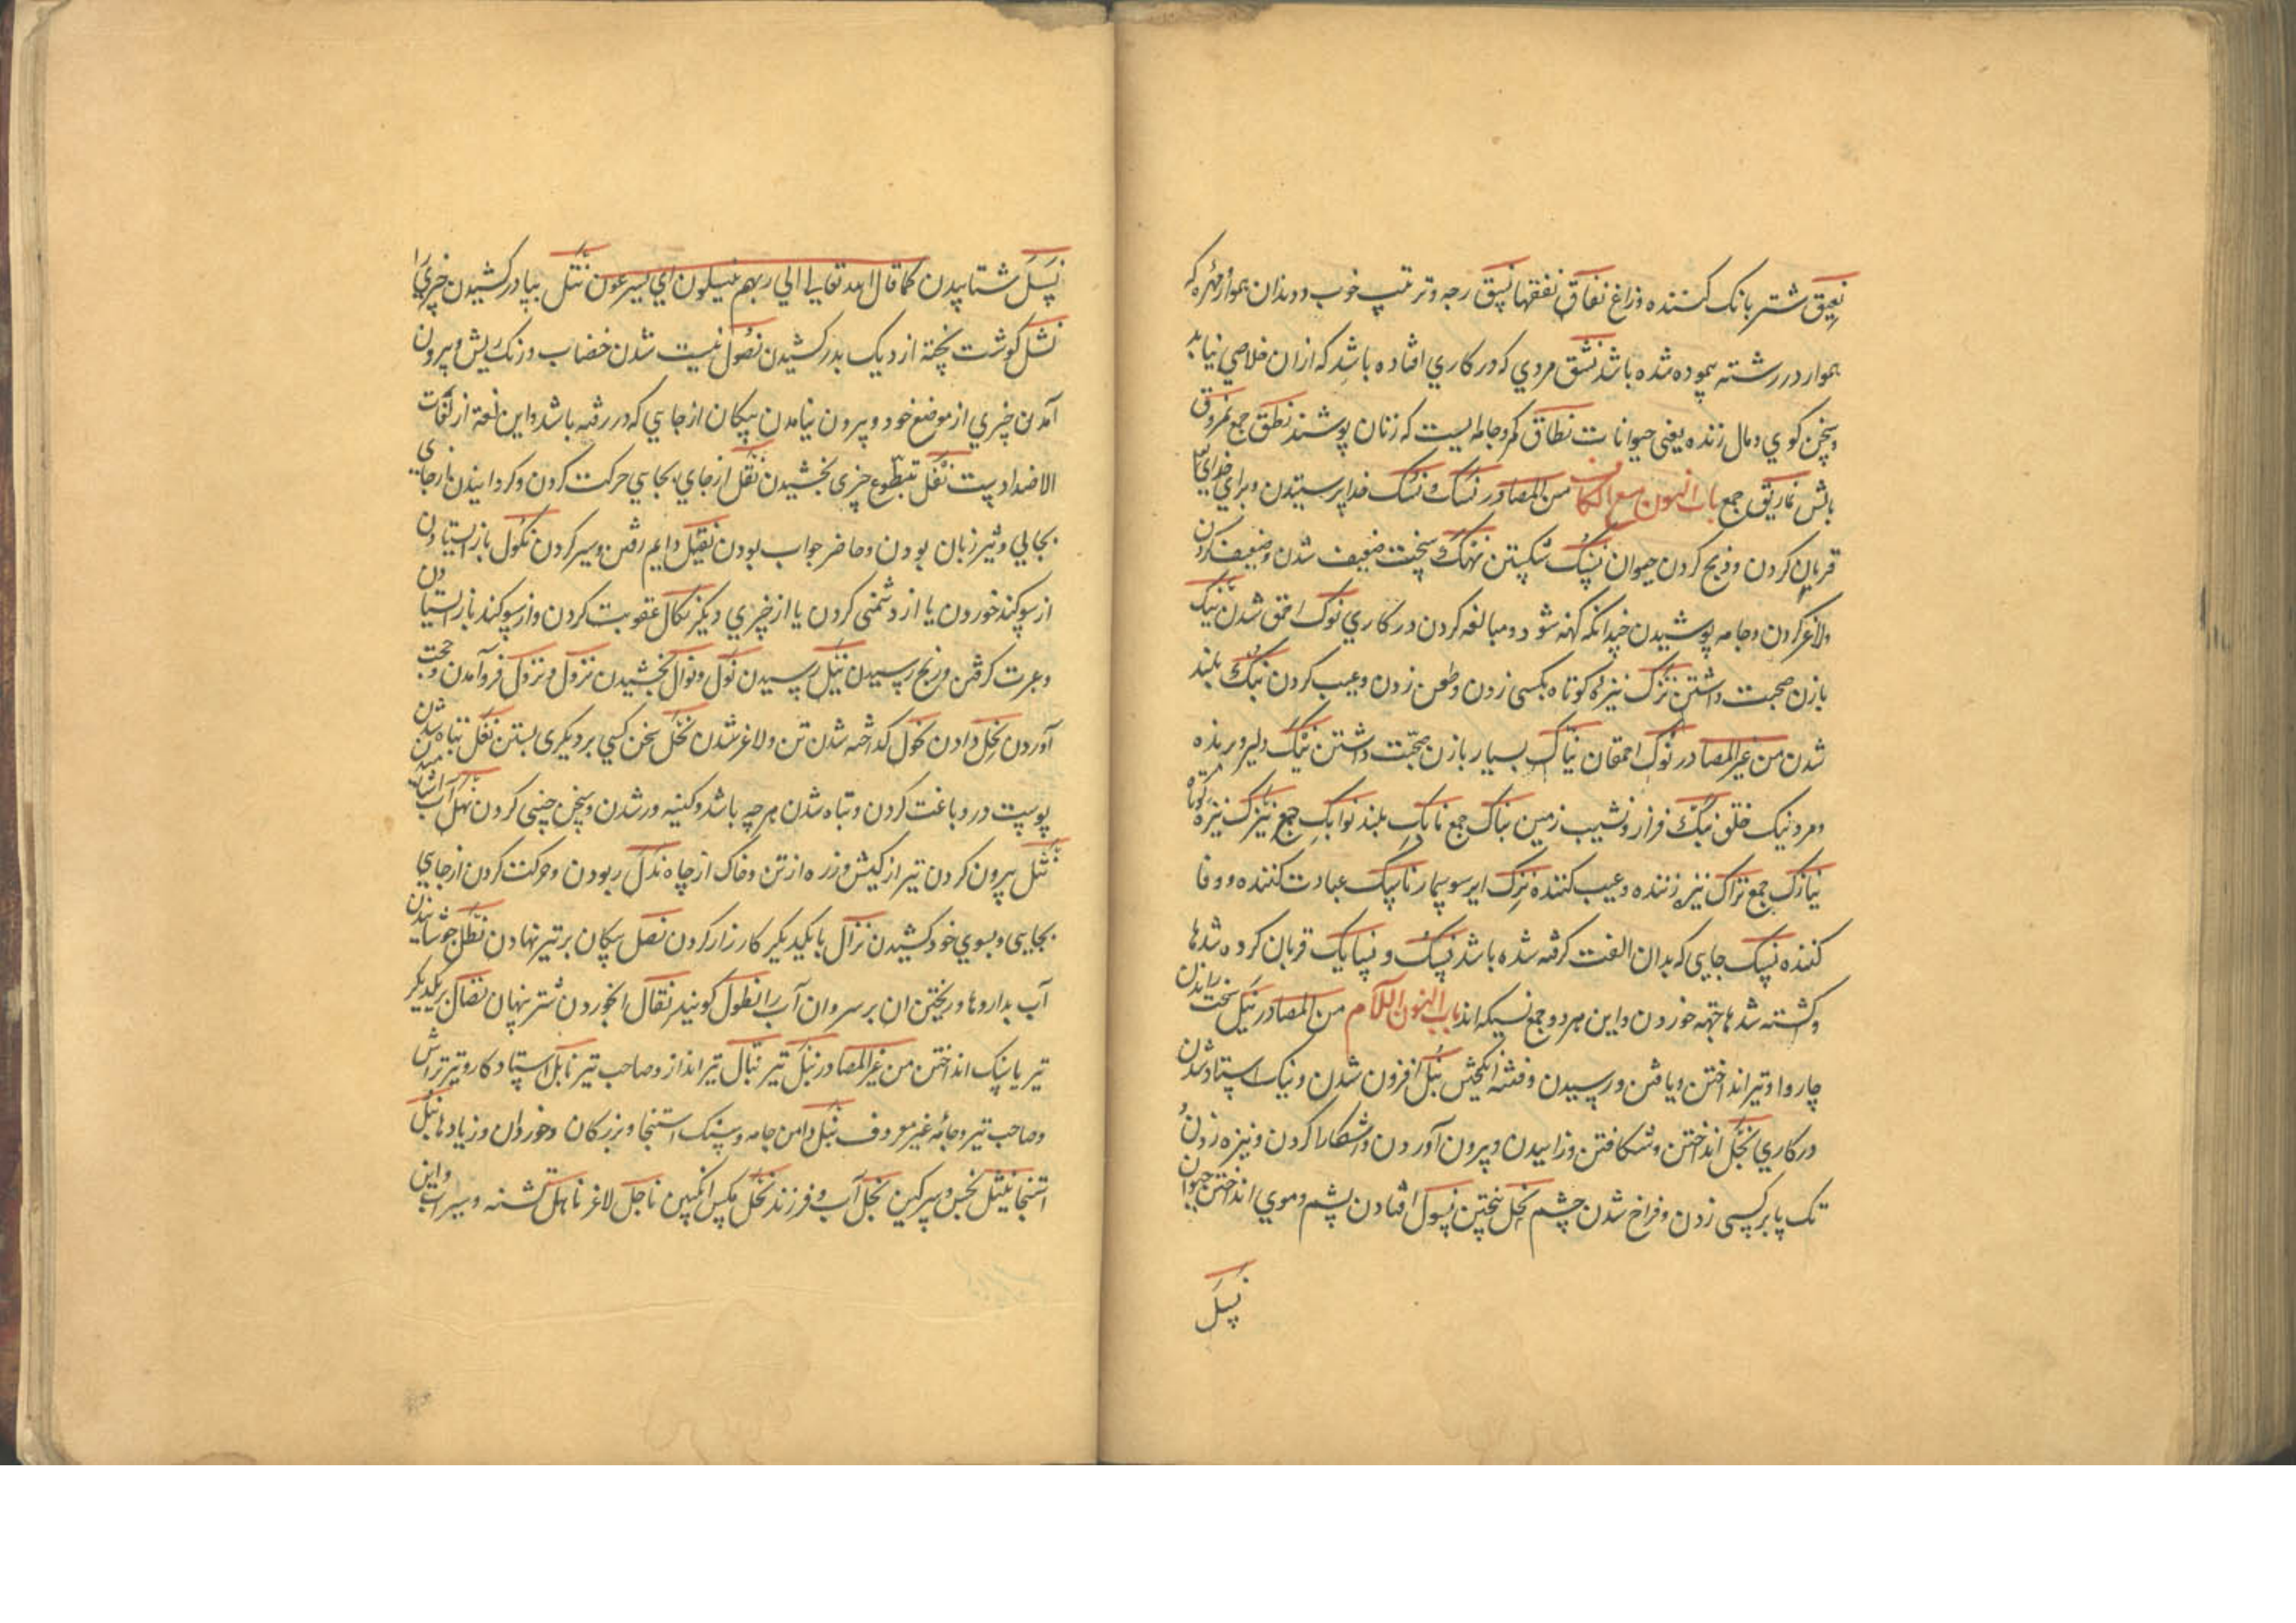 نعیق شتر بانک کننده وزاغ نفاق نفقها نسق رجه و ترتیب خوب و دندان هموار و مهره که
هموار در رشته پیوده شده باشد نشق مردي که در کاري افتاده باشد که ازان خلاصي نیابد
وسخن کوي و مال زنده یعنی حیوانات نطاق کمر و جامه ایست که زنان پوشند نطق جمع نمروق
بالش نماریق جمع باب النون مع الکاف من المصادر نساک و نسک خدا پرستیدن و برای خدای
قربان کردن و ذبح کردن حیوان نسک شکستن نهک سخت ضعیف شدن و ضعیف کردن
ولاغر کردن و جامه پوشیدن چندانکه کهنه شود و مبالغه کردن در کاري نوک احمق شدن نیک
بازن صحبت داشتن نزک نیزه کوتاه بکسی زدن و طعن زدن و عیب کردن نبک بلند
شدن من غیر المصادر نوک احمقان نیاک بسیار بازن صحبت داشتن نهیک دلیر و برنده
و مرد نیک خلق نبک فراز و نشیب زمین نباک جمع نابک بلند نوابک جمع نیزک نیزه کوتاه
نیازک جمع نزاک نیزه زننده و عیب کننده نزک ایر سوسمار ناسک عبادت کننده و وفا
کننده نسک جایی که بدان الفت کرفته شده باشد نسک و نسایک قربان کرده شدها
و کشته شدها جهة خوردن و این هر دو جمع نسیکه اند باب النون اللام من المصادر نبل سخت راندن
چاروا و تیر انداختن و یافتن و رسیدن و فتنه انکیختن نبل افزون شدن و نیک استاد شدن
در کاري نجل انداختن و شکافتن و زاییدن و بیرون آوردن و اشکارا کردن و نیزه زدن
تک پا بر کسی زدن و فراخ شدن چشم نخل بیختن نسول افتادن پشم و موي انداختن حیوان
نسل
نسل شتابیدن کما قال الله تعالی الي ربهم ینسلون اي یسرعون نتل بپا در کشیدن چیزي را
نشل کوشت پخته از دیک بدر کشیدن نصول نیست شدن خضاب و رنک ریش و بیرون
آمدن چیزي از موضع خود و بیرون نیامدن پیکان از جایي که در رفته باشد و این لغة از لغات
الاضداد ست نفل تبطوع چیزی بخشیدن نقل از جاي بجایي حرکت کردن و کردانیدن از جای
بجایي و تیز زبان بودن و حاضر جواب بودن نقیل دایم رفتن و سیر کردن نکول باز ایستادن
از سوکند خوردن یا از دشمنی کردن یا از چیزي دیکر نکال عقوبت کردن و از سوکند باز ایستادن
و عبرت کرفتن و رنج رسیدن نیل رسیدن نول و نوال بخشیدن نزول و نزول فرو آمدن و حجت
آوردن نحل دادن نحول کداخته شدن تن و لاغر شدن نحل سخن کسي بر دیکری بستن نغل تباه شدن
پوست در دباغت کردن و تباه شدن هر چه باشد و کینه ور شدن و سخن چینی کردن نهل آب اشامیدن
نثل بیرون کردن تیر از کیش و زره از تن و خاک از چاه ندل ربودن و حرکت کردن از جاي
بجایی و بسوي خود کشیدن نزال با یکدیکر کارزار کردن نصل پیکان بر تیر نهادن نطل جوشانیدن
آب بداروها و ریختن ان بر سر و ان آب را نطول کویند نقال انخوردن شتر نهان نضال بر یکدیکر
تیر یا سنک انداختن من غیر المصادر نبل تیر نبال تیر انداز و صاحب تیر نابل استاد کار و تیر تراش
و صاحب تیر و جامٔه غیر معروف نبل دامن جامه و سنک استنجا و بزرکان و خوردان و زیادها نبل
استنجا نثیل نجس و سرکین نجل آب و فرزند نحل مکس انکبین ناحل لاغر ناهل تشنه و سیراب و این